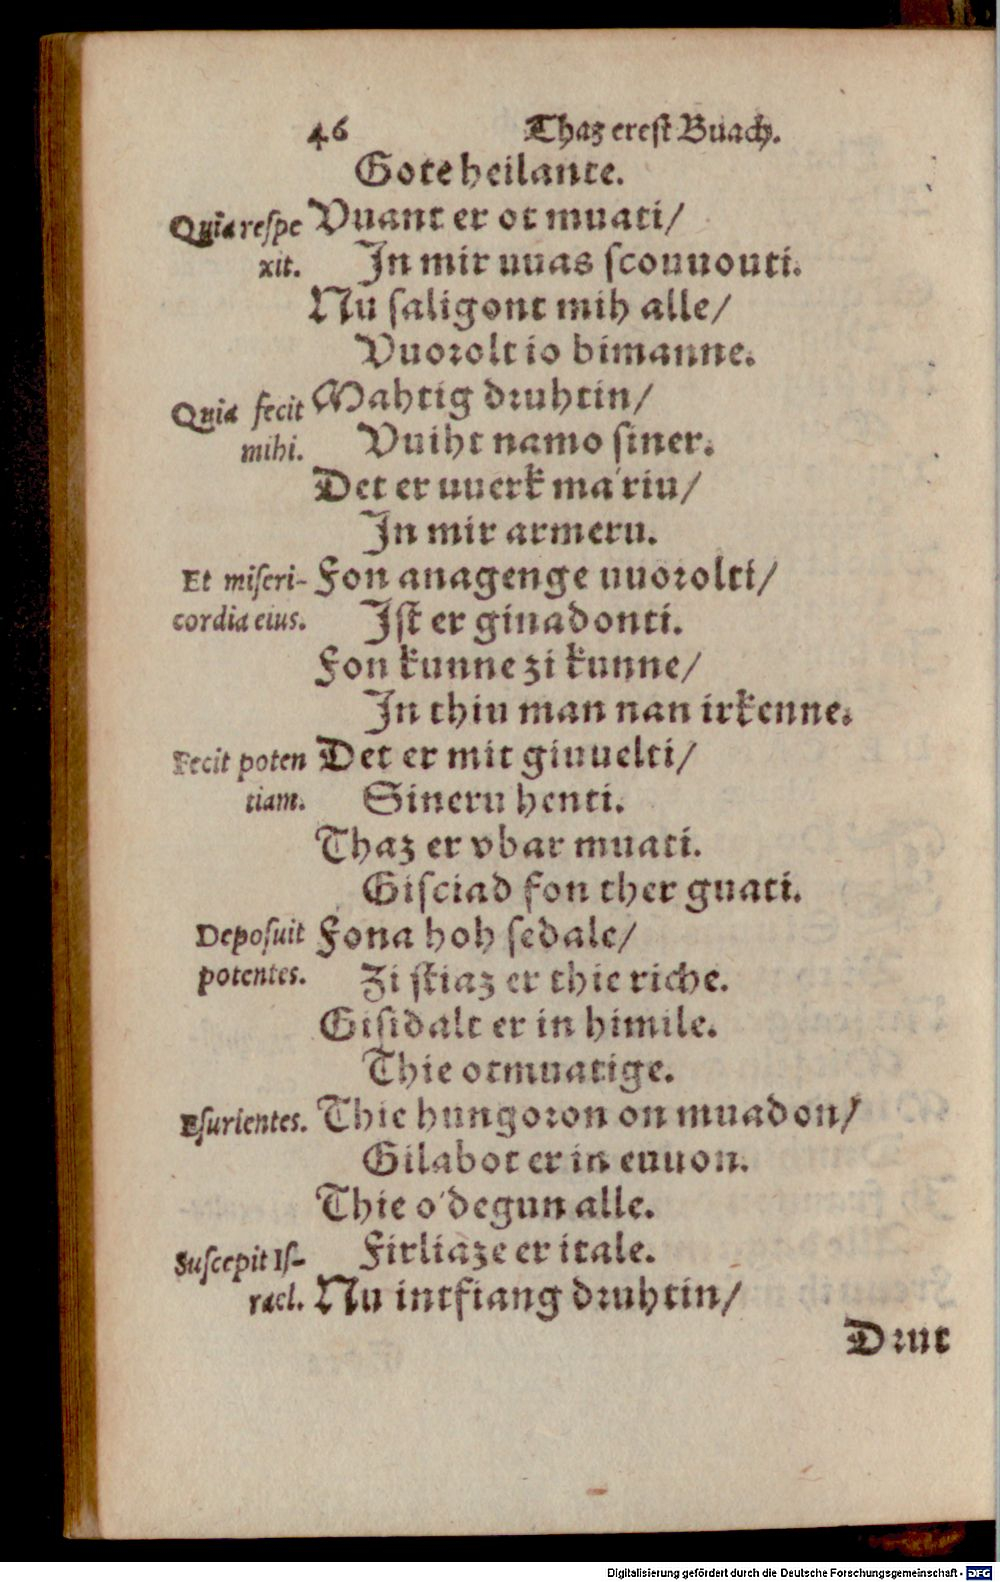 46 Thaz erest Buach.
Gote heilante.
Quia respe Vuant er ot muati/
xit. In mir uuas scouuouti.
Nu saligont mih alle/
Vuorolt io bimanne.
Quia fecit Mahtig druhtin/
mihi. Vuiht namo siner.
Det er uuerk ma'riu/
In mir armeru.
Et miseri- Fon anagenge uuorolti/
cordia eius. Ist er ginadonti.
Fon kunne zi kunne/
In thiu man nan irkenne.
Fecit poten Det er mit giuuelti/
tiam. Sineru henti.
Thaz er vbar muati.
Gisciad fon ther guati.
Deposuit Fona hoh sedale/
potentes. Zi stiaz er thie riche.
Gisidalt er in himile.
Thie otmuatige.
Esurientes. Thie hungoron on muadon/
Gilabot er in euuon.
Thie o'degun alle.
Suscepit Is- Firliaze er itale.
rael. Nu intfiang druhtin/
Drut
Digitalisierung gefördert durch die Deutsche Forschungsgemeinschaft - DFG